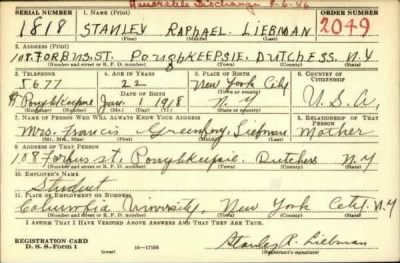 Honorable Discharge 2-6-46
SERIAL NUMBER 1. NAME (Print) ORDER NUMBER
1818 STANLEY RAPHAEL LIEBMAN 2049
(First) (Middle) (Last)
2. ADDRESS (Print)
108 FORBUS ST. POUGHKEEPSIE, DUTCHESS, N.Y
(Number and street or R. F. D. number) (Town) (County) (State)
3. TELEPHONE 4. AGE IN YEARS 5. PLACE OF BIRTH 6. COUNTRY OF CITIZENSHIP
5677 22 New York City
DATE OF BIRTH (Town or county)
Poughkeepsie Jan. 1918 N.Y U.S.A.
(Exchange) (Number) (Mo.) (Day) (Yr.) (State or country)
7. NAME OF PERSON WHO WILL ALWAYS KNOW YOUR ADDRESS 8. RELATIONSHIP OF THAT PERSON
Mrs. Francis Greenberg Liebman Mother
(Mr., Mrs., Miss) (First) (Middle) (Last)
9. ADDRESS OF THAT PERSON
108 Forbus st. Poughkeepsie. Dutchess N.Y
(Number and street or R. F. D. number) (Town) (County) (State)
10. EMPLOYER'S NAME
Student
11. PLACE OF EMPLOYMENT OR BUSINESS
Columbia University, New York City. N.Y
(Number and street or R. F. D. number) (Town) (County) (State)
I AFFIRM THAT I HAVE VERIFIED ABOVE ANSWERS AND THAT THEY ARE TRUE.
REGISTRATION CARD
D. S. S. Form 1 16—17105 Stanley R. Liebman
(Registrant's signature)